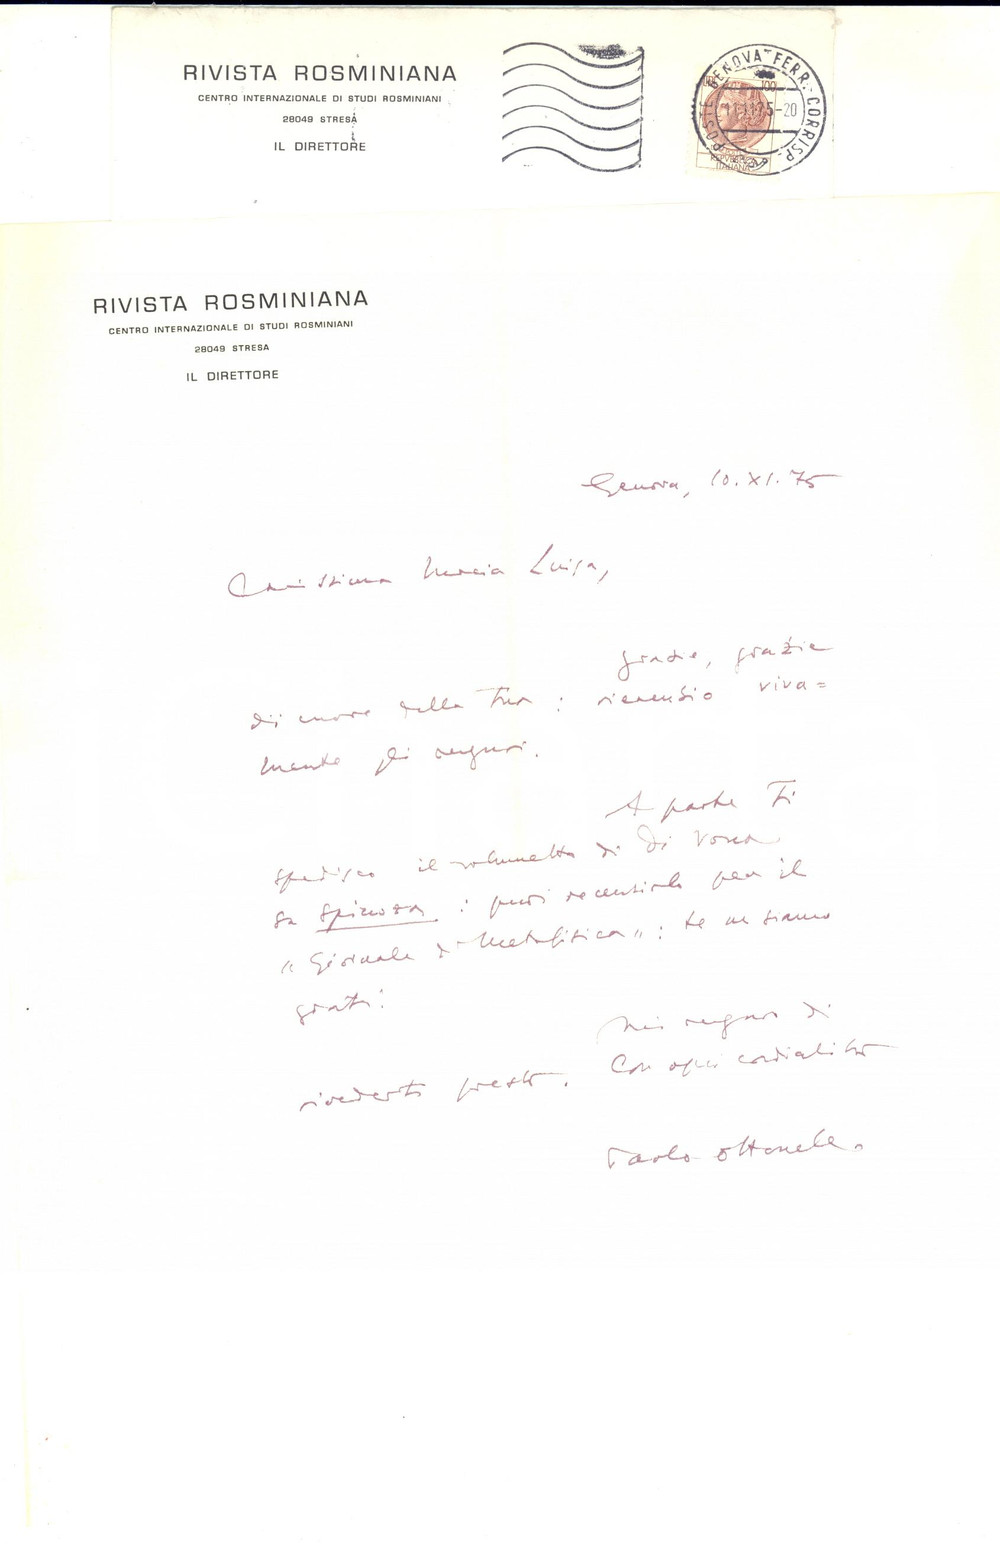 RIVISTA ROSMINIANA
CENTRO INTERNAZIONALE DI STUDI ROSMINIANI
28049 STRESA
IL DIRETTORE
POSTE GENOVA FERR. CORRISP.
100
11.XI.75-20
REPVBBLICA
ITALIANA
RIVISTA ROSMINIANA
CENTRO INTERNAZIONALE DI STUDI ROSMINIANI
28049 STRESA
IL DIRETTORE
Genova, 10.XI.75
Carissima Maria Luisa,
grazie, grazie
di cuore della Tua: ricambio viva=
mente gli auguri.
A parte Ti
spedisco il volumetto di Di Vona
su Spinoza: puoi recensirlo per il
"Giornale di Metafisica": te ne siamo
grati!
Mi auguro di
rivederti presto. Con ogni cordialità
Paolo Ottonello.